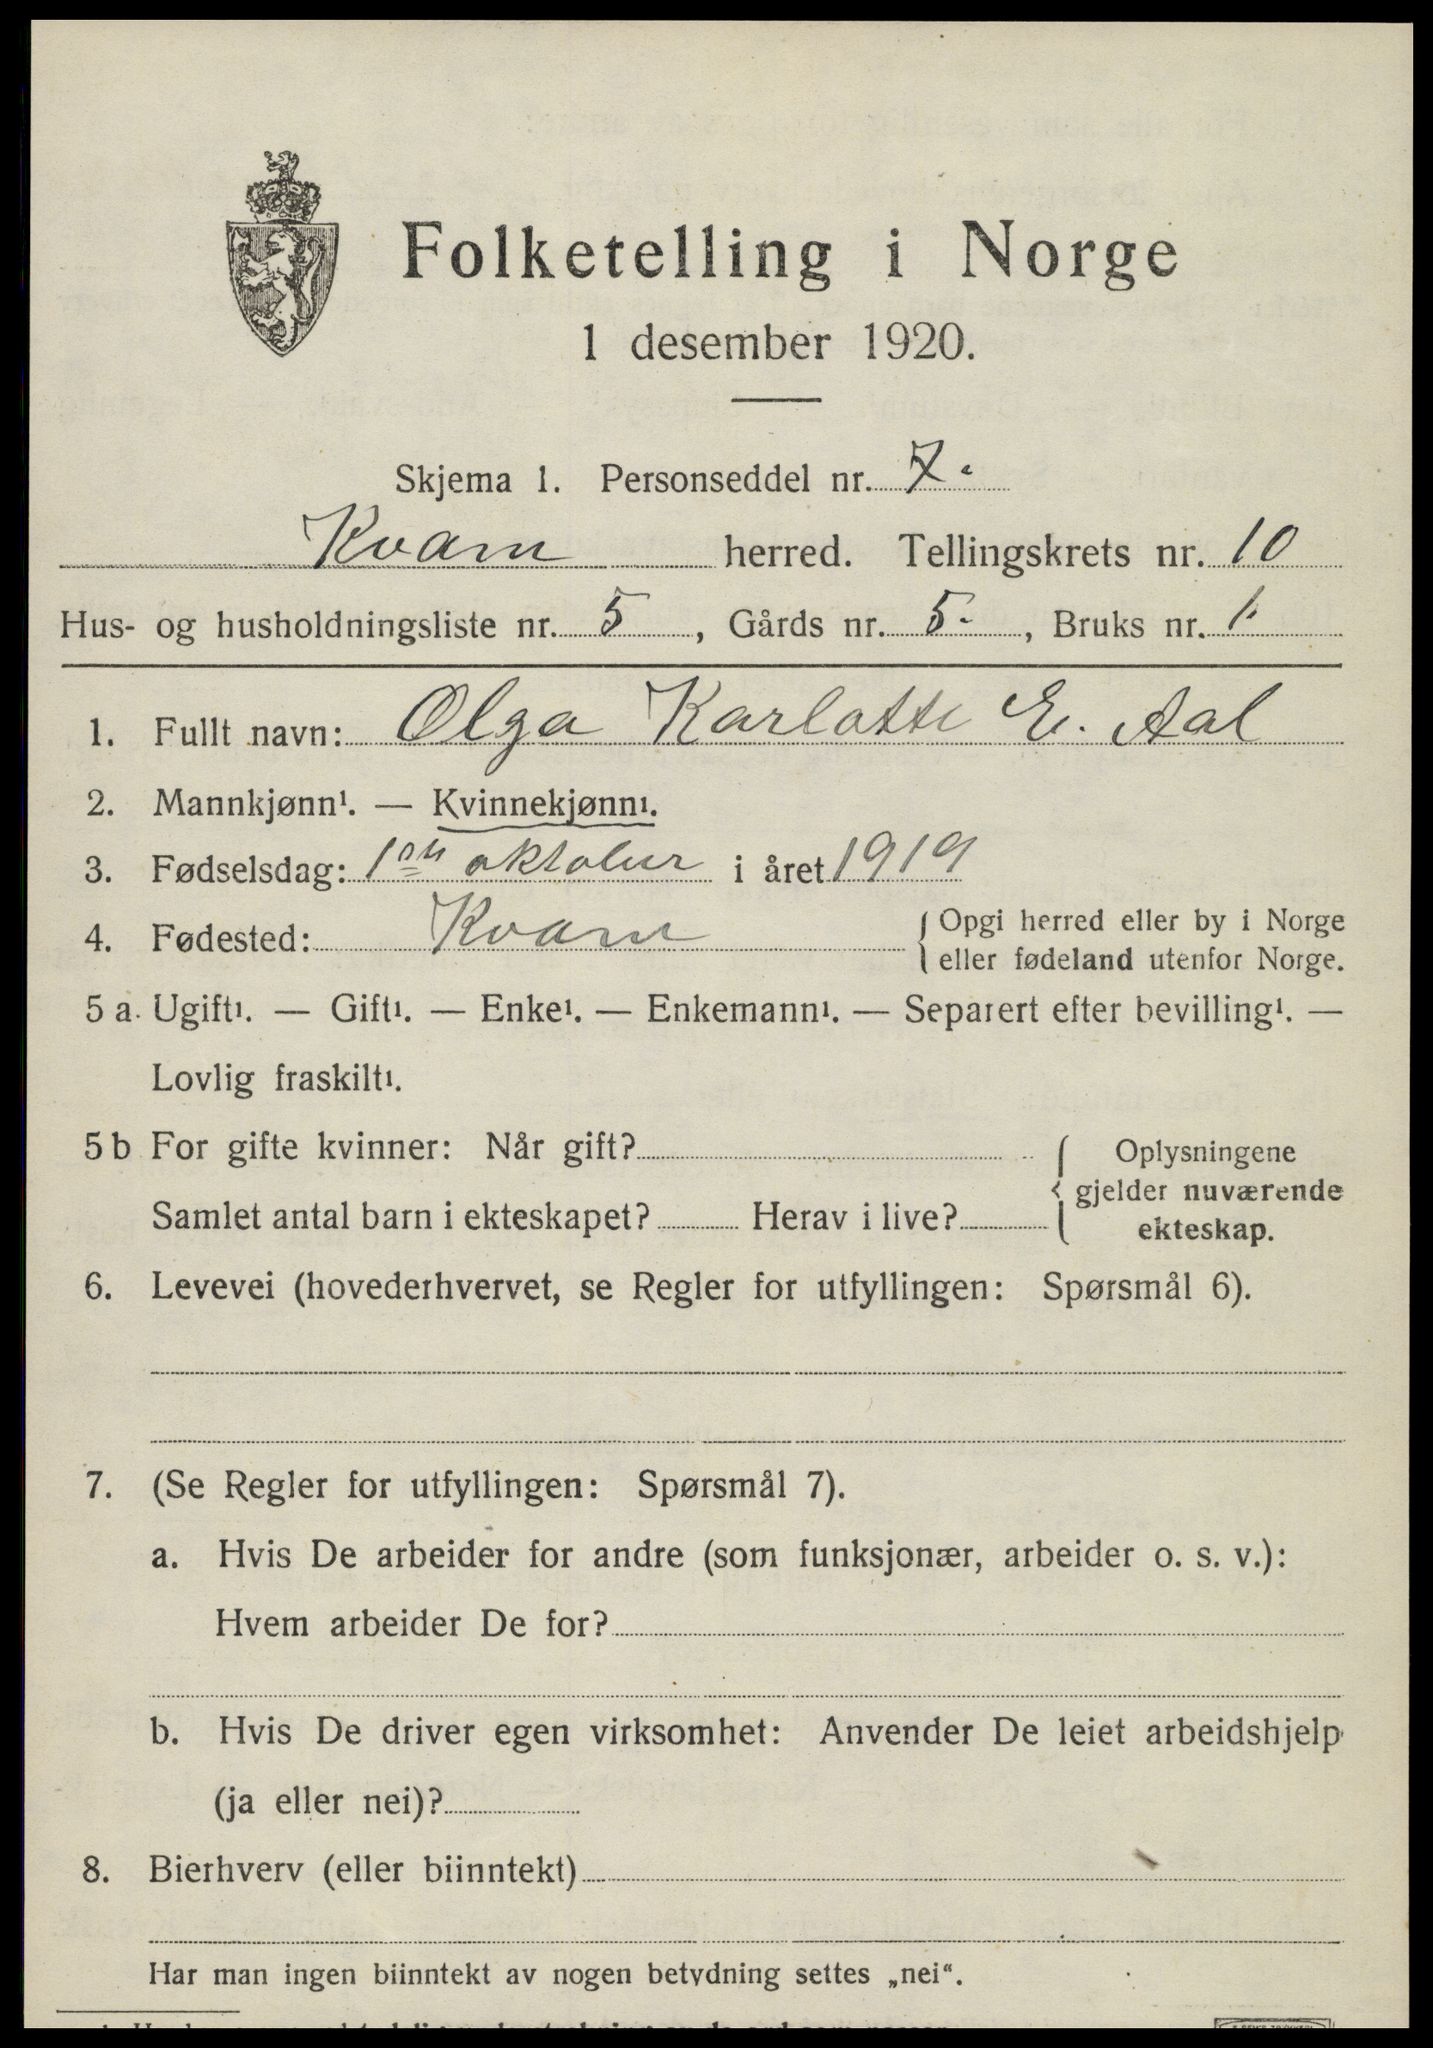 Folketelling i Norge
1 desember 1920.
Skjema 1. Personseddel nr. 7.
Kvam herred. Tellingskrets nr. 10
Hus- og husholdningsliste nr. 5, Gårds nr. 5., Bruks nr. 1.
1. Fullt navn: Olga Karlotte E. Aal
2. Mannkjønn¹. — Kvinnekjønn¹.
3. Fødselsdag: 1ste oktober i året 1919
4. Fødested: Kvam { Opgi herred eller by i Norge
eller fødeland utenfor Norge.
5 a. Ugift¹. — Gift¹. — Enke¹. — Enkemann¹. — Separert efter bevilling¹. —
Lovlig fraskilt¹.
5 b For gifte kvinner: Når gift? { Oplysningene
gjelder nuværende
Samlet antal barn i ekteskapet? Herav i live? ekteskap.
6. Levevei (hovederhvervet, se Regler for utfyllingen: Spørsmål 6).
7. (Se Regler for utfyllingen: Spørsmål 7).
a. Hvis De arbeider for andre (som funksjonær, arbeider o. s. v.):
Hvem arbeider De for?
b. Hvis De driver egen virksomhet: Anvender De leiet arbeidshjelp
(ja eller nei)?
8. Bierhverv (eller biinntekt)
Har man ingen biinntekt av nogen betydning settes „nei“.